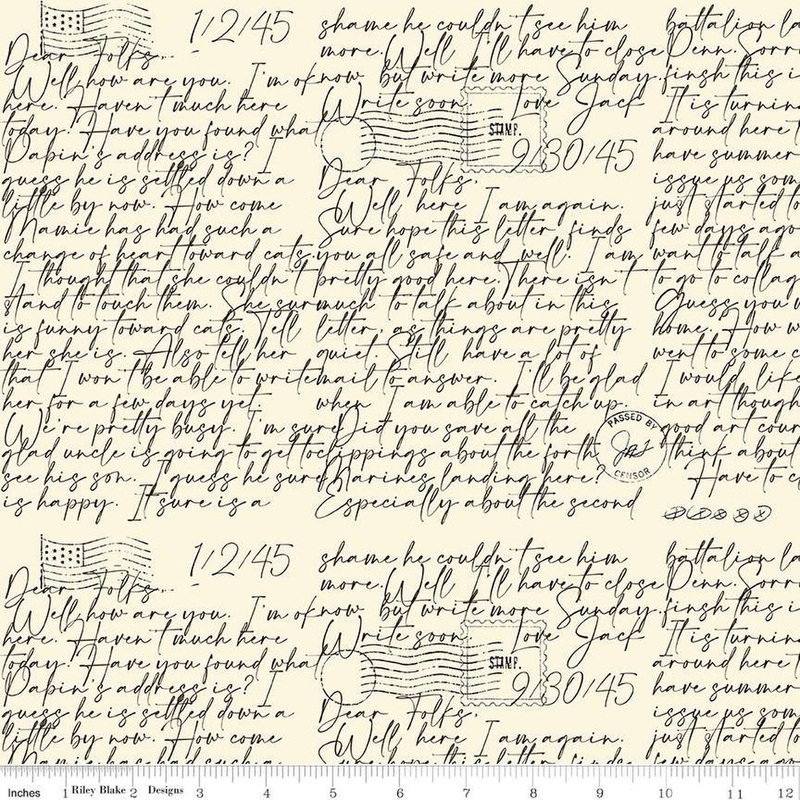 1/2/45
Dear Folks...
Well, how are you. I'm ok
here. Haven't much here
today. Have you found what
Papin's address is? I
guess he is settled down a
little by now. How come
Mamie has had such a
change of heart toward cats.
I thought that she couldn't
stand to touch them. She sur
is funny toward cats. Tell
her she is. Also tell her
that I won't be able to write
her for a few days yet.
We're pretty busy. I'm sure
glad uncle is going to get to
see his son. I guess he sure
is happy. It sure is a
shame he couldn't see him
more. Well I'll have to close
now but write more Sunday.
Write soon Love Jack
STAMP.
9/30/45
Dear Folks.
Well, here I am again.
Sure hope this letter finds
you all safe and well. I am
pretty good here. There isn't
much to talk about in this
letter, as things are pretty
quiet. Still have a lot of
mail to answer. I'll be glad
when I am able to catch up.
Did you save all the
clippings about the forth
Marines landing here?
Especially about the second
battalion la
Penn. Sorr
finsh this i
It is turnin
around here t
have summer
issue us som
just started to
few days ago
want to talk a
to go to collag
Guess you w
home. How w
went to some c
I would like
in art though
good art cour
think about
Have to c
PASSED BY
CENSOR
1/2/45
Dear Folks...
Well, how are you. I'm ok
here. Haven't much here
today. Have you found what
Papin's address is? I
guess he is settled down a
little by now. How come
Mamie has had such a
shame he couldn't see him
more. Well I'll have to close
now but write more Sunday.
Write soon Love Jack
STAMP.
9/30/45
Dear Folks.
Well, here I am again.
Sure hope this letter finds
battalion la
Penn. Sorr
finsh this i
It is turnin
around here t
have summer
issue us som
just started to
few days ago
Inches 1 Riley Blake 2 Designs 3 4 5 6 7 8 9 10 11 12